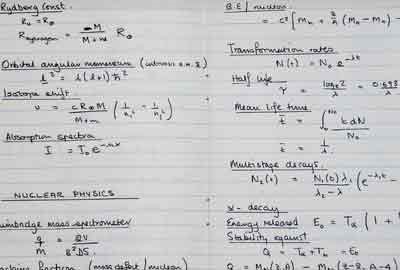 Rydberg Const.
R₀ = R∞
R hydrogen = M / M+m R∞
Orbital angular momentum
l² = l(l+1)ħ²
Isotope shift.
υ = cR∞M / M+m (1/n₁² - 1/n₂²)
Absorption spectra
I = I₀e
NUCLEAR PHYSICS
Bainbridge mass spectrometer
q/m = 2V / B²DS
fraction (mass defect/nucleon)
B.E/nucleon
= c² [Mₙ + Z/A (Mₕ - Mₙ) -
Transformation rates.
N(t) = N₀ e^-λt
Half life
τ = logₑ2 / λ = 0.693 / λ
Mean life time
t̄ = ∫₀^N₀ t dN / N₀
t̄ = 1/λ
Multistage decays.
N₂(t) = N₁(0) λ₁ / λ₂ - λ₁ (e^-λ₁t -
α - decay
Energy released E₀ = Tα (1 +
Stability against
Q = Tα + Tₕ = E₀
Q = (Z,A) - (Z-2, A-4)